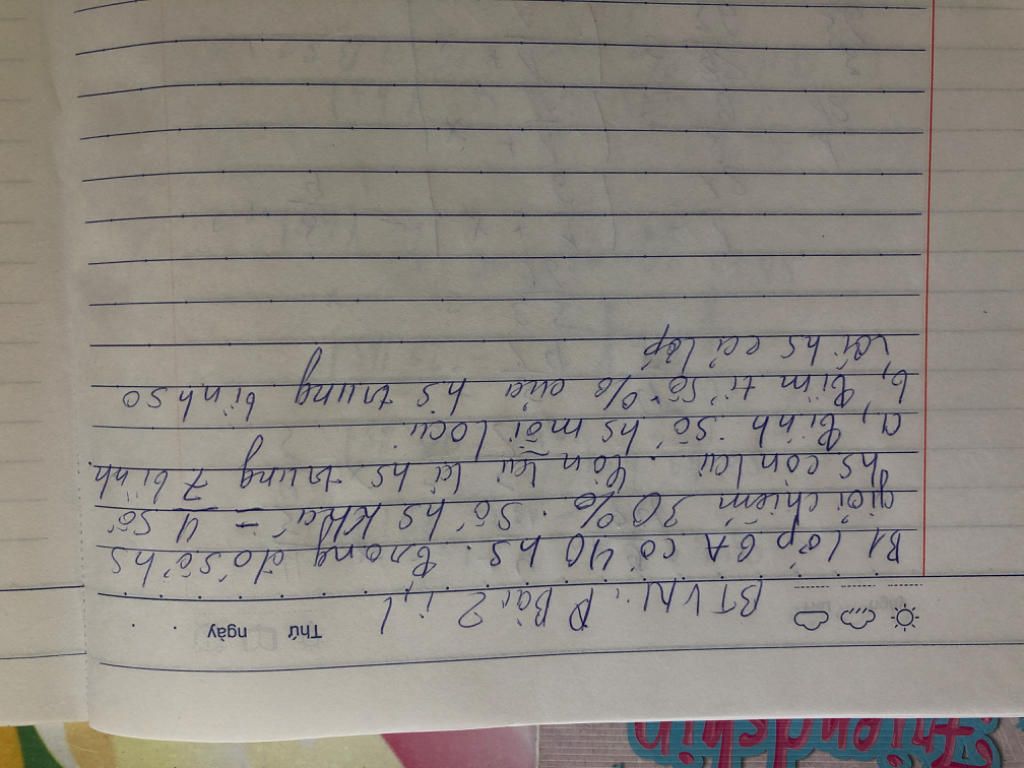 Thứ ngày
BTVN: Bài 2 i, l
B1 Lớp 6A có 40 hs. Trong đó số hs
giỏi chiếm 30%. Số hs khá = 4/7 số
hs còn lại. Còn lại là hs trung bình.
a, Tính số hs mỗi loại.
b, Tìm tỉ số % của hs trung bình so
với hs cả lớp
Friendship